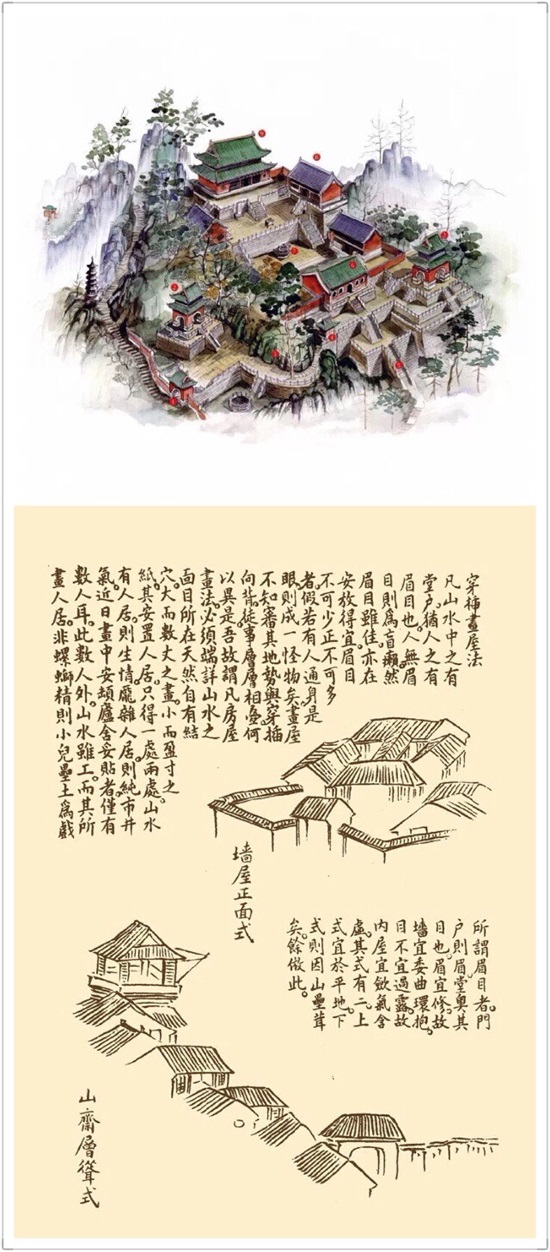 穿揷畫屋法
凡山水中之有
堂戶猶人之有
眉目也人無眉
目則為盲癩然
眉目雖佳亦在
安放得宜眉目
不可少正不可多
者。假若有人通身是
眼。則成一怪物矣。畫屋
不知審其地勢與穿揷
向背。徒事層層相壘。何
以異是。吾故謂凡房屋
畫法。必須端詳山水之
面目所在。天然自有結
穴。大而數丈之畫。小而盈寸之
紙。其安置人居。只得一處兩處。山水
有人居。則生情。龐雜人居。則純市井
氣。近日畫中安頓廬舍妥貼者。僅有
數人耳。此數人外。山水雖工。而其所
畫人居。非螺螄精。則小兒壘土爲戲
墙屋正面式
所謂眉目者。門
户則眉。堂奧其
目也。眉宜修。故
墻宜委曲環抱。
目不宜過露。故
内屋宜斂氣含
虛。其式有二。上
式宜於平地。下
式則因山壘葺
矣。餘倣此。
山齋層聳式